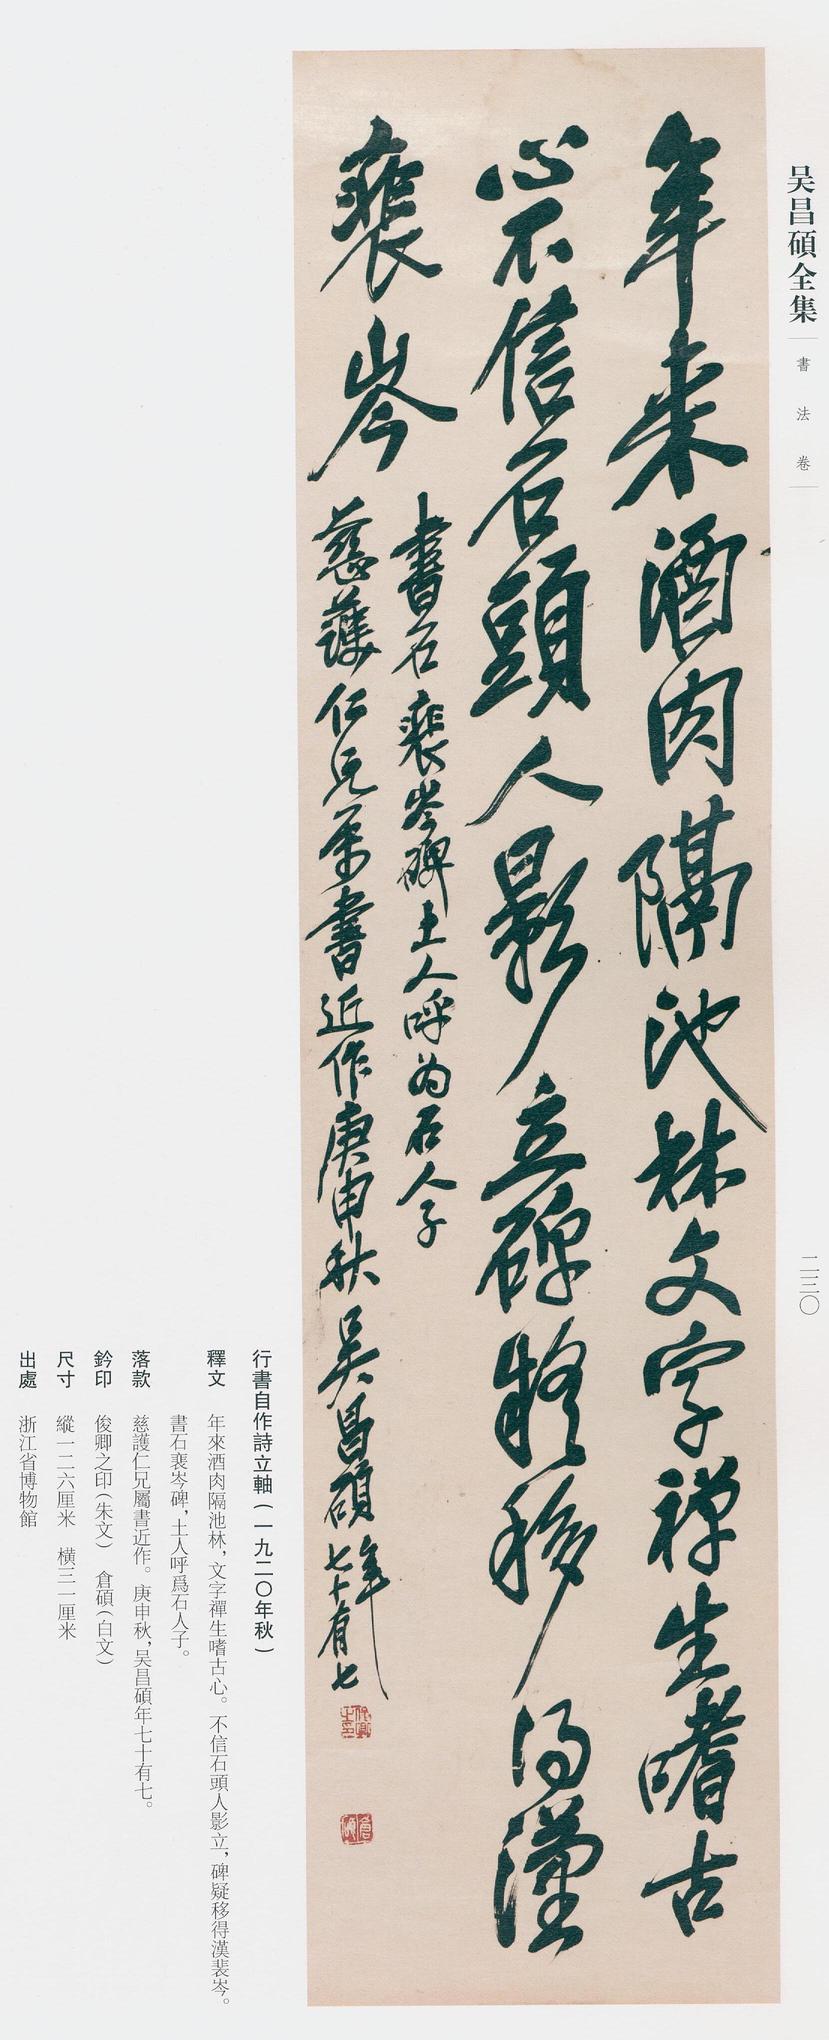 吴昌碩全集
書法卷
二三〇
年來酒肉隔池林文字禪生嗜古
心不信石頭人影立碑疑移得漢
裴岑
書石裴岑碑土人呼为石人子
慈護仁兄屬書近作庚申秋吴昌碩年
七十有七
俊卿之印
倉碩
行書自作詩立軸(一九二〇年秋)
釋文 年來酒肉隔池林,文字禪生嗜古心。不信石頭人影立,碑疑移得漢裴岑。
書石裴岑碑,土人呼爲石人子。
落款 慈護仁兄屬書近作。庚申秋,吴昌碩年七十有七。
鈐印 俊卿之印(朱文) 倉碩(白文)
尺寸 縱一二六厘米 橫三一厘米
出處 浙江省博物館